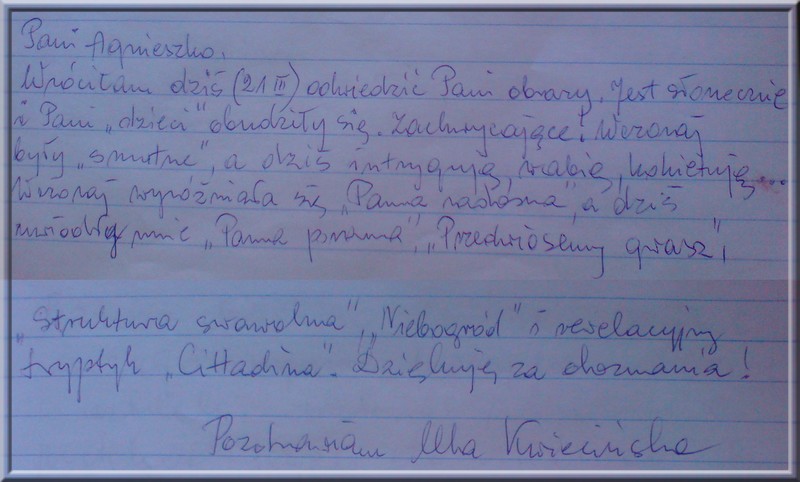 Pani Agnieszko,
Wróciłam dziś (21 III) odwiedzić Pani obrazy. Jest słonecznie
i Pani „dzieci" obudziły się. Zachwycające! Wczoraj
były „smutne", a dziś intrygują, wabią, kokietują...
Wczoraj wyróżniała się „Panna radosna", a dziś
uwiodły mnie „Panna poranna", „Przedwiosenny gwasz",
„Struktura swawolna", „Niebogród" i rewelacyjny
tryptyk „Cittadina". Dziękuję za doznania!
Pozdrawiam Kwiecińska